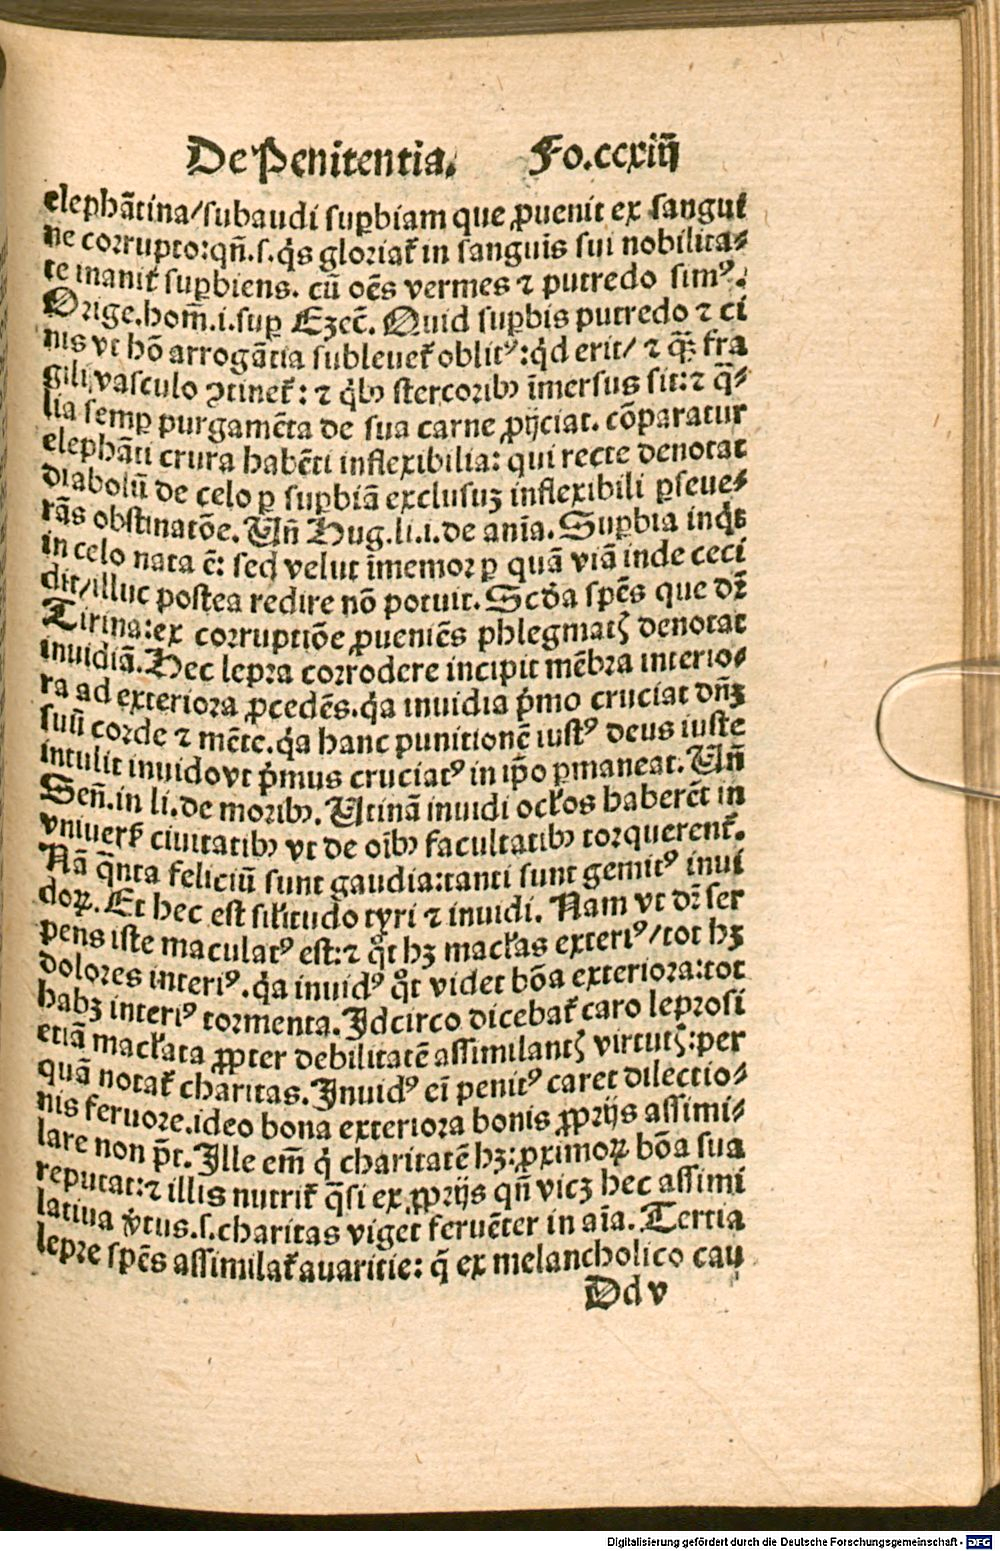 De Penitentia. Fo.ccxiij
elephãtina/subaudi suꝑbiam que ꝓuenit ex sangui
ne corrupto:qñ.s.q̇s gloriat᷑ in sanguis sui nobilita⸗
te inanit᷑ suꝑbiens. cũ oẽs vermes ⁊ putredo simꝰ.
Orige.hom̃.i.suꝑ Ezec̃. Quid suꝑbis putredo ⁊ ci
nis vt hõ arrogãtia subleuet᷑ oblitꝰ:q̇d erit/ ⁊ q̃ꝫ fra
gili vasculo ꝯtinet᷑: ⁊ q̇bꝰ stercoribꝰ ĩmersus sit:⁊ q̃⸗
lia semꝑ purgamẽta de sua carne ꝓijciat. cõparatur
elephãti crura habẽti inflexibilia: qui recte denotat
diabolũ de celo ꝑ suꝑbiã exclusuꝫ inflexibili ꝑseue⸗
rãs obstinatõe. Vñ Hug.li.i.de anĩa. Suꝑbia inq̇t
in celo nata ẽ: sed velut ĩmemor ꝑ quã viã inde ceci
dit/illuc postea redire nõ potuit. Scd̃a spẽs que dr̃
Tirina:ex corruptiõe ꝓueniẽs phlegmatꝭ denotat
inuidiã. Hec lepra corrodere incipit mẽbra interio⸗
ra ad exteriora ꝓcedẽs.q̇a inuidia ṗmo cruciat dñꝫ
suũ corde ⁊ mẽte.q̇a hanc punitionẽ iustꝰ deus iuste
intulit inuido vt ṗmus cruciatꝰ in ip̃o ꝑmaneat. Vñ
Señ.in li.de moribꝰ. Vtinã inuidi oc̃los haberẽt in
vniuers᷑ ciuitatibꝰ vt de oĩbꝰ facultatibꝰ torquerent᷑.
Nã q̃nta feliciũ sunt gaudia:tanti sunt gemitꝰ inui
doꝝ. Et hec est sil̃itudo tyri ⁊ inuidi. Nam vt dr̃ ser
pens iste maculatꝰ est:⁊ qͦt hꝫ mac̃las exteriꝰ/tot hꝫ
dolores interiꝰ.q̇a inuidꝰ qͦt videt bõa exteriora:tot
habꝫ interiꝰ tormenta. Idcirco dicebat᷑ caro leprosi
etiã mac̃lata ꝓpter debilitatẽ assimilantꝭ virtutꝭ:per
quã notat᷑ charitas. Inuidꝰ eĩ penitꝰ caret dilectio⸗
nis feruore.ideo bona exteriora bonis ꝓprijs assimi⸗
lare non põt. Ille em̃ q̇ charitatẽ hꝫ:ꝓximoꝝ bõa sua
reputat:⁊ illis nutrit᷑ q̃si ex ꝓprijs qñ vicꝫ hec assimi
latiua ṽtus.s.charitas viget feruẽter in aĩa. Tertia
lepre spẽs assimilat᷑ auaritie: q̃ ex melancholico cau
Dd v
Digitalisierung gefördert durch die Deutsche Forschungsgemeinschaft - DFG